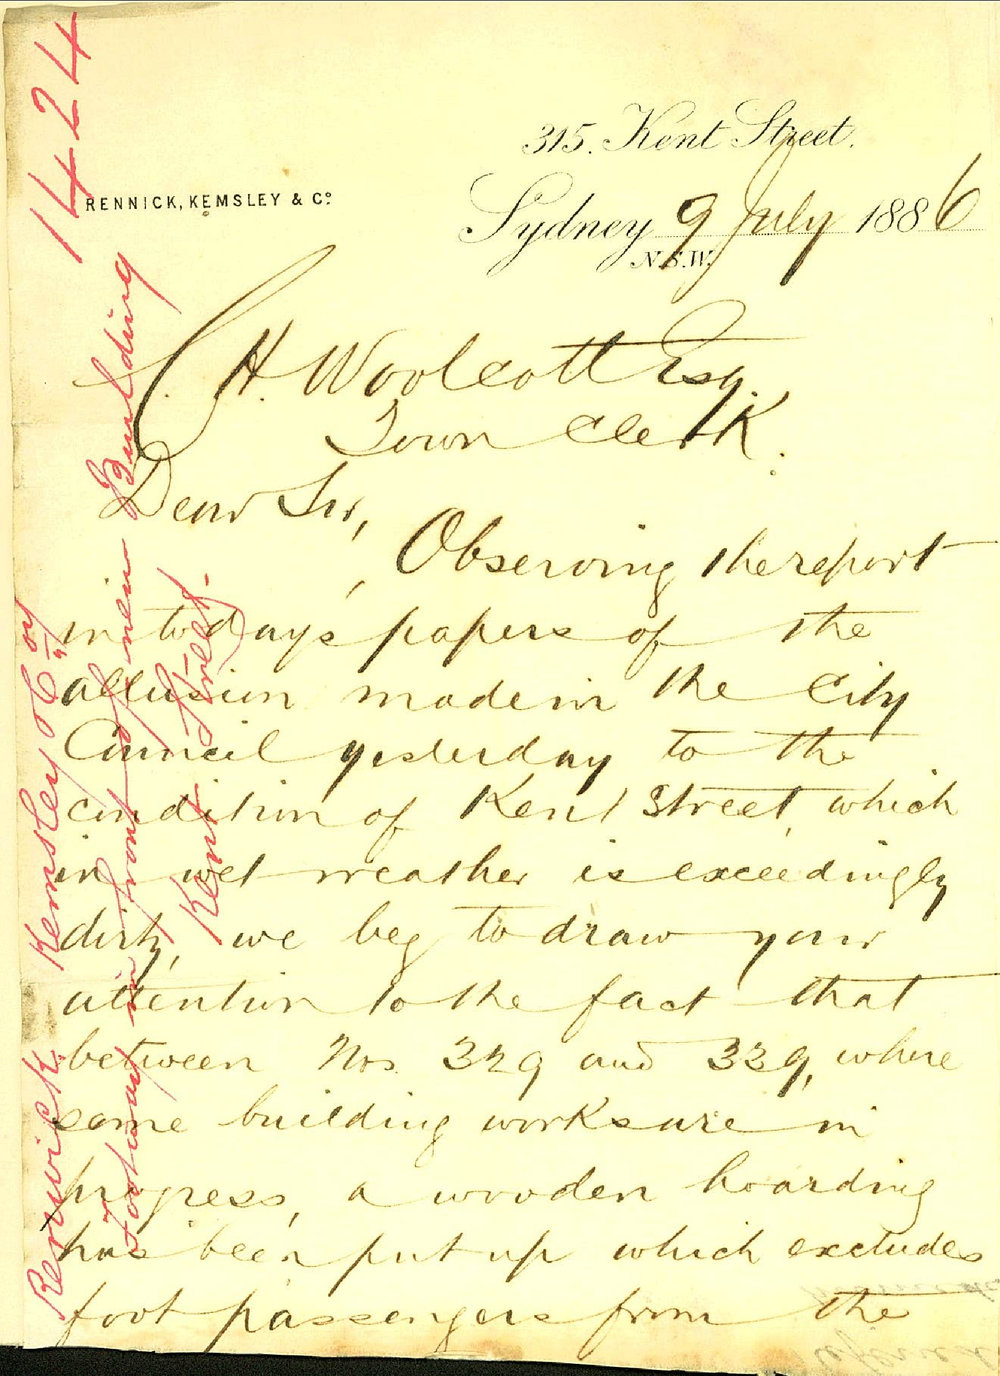 315. Kent Street.
RENNICK, KEMSLEY & Co.
Sydney 9 July 1886
N.S.W.
C. H. Woolcott Esq.
Town Clerk.
Dear Sir,
Observing the report
in todays papers of the
allusion made in the City
Council yesterday to the
condition of Kent Street, which
in wet weather is exceedingly
dirty, we beg to draw your
attention to the fact that
between Nos. 329 and 339, where
some building works are in
progress, a wooden hoarding
has been put up which excludes
foot passengers from the
1424
Renwick Kemsley & Co
Footway in front of new Building
Kent Street.